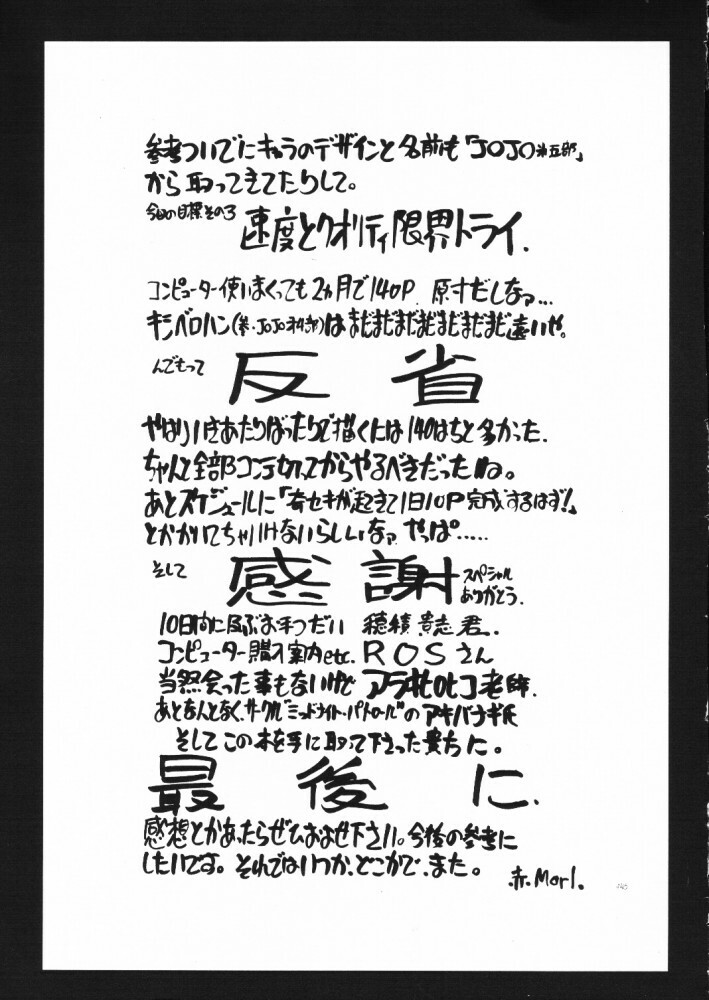 参考ついでにキャラのデザインと名前も「JOJO第五部」
から取ってきてたりして。
今回の目標その3
速度とクオリティ限界トライ.
コンピューター使いまくっても2ヵ月で140P. 原寸だしなァ…
キシベロハン(参・JOJO)はまだまだまだまだまだまだまだ遠いや。
んでもって
反省
やはり行きあたりばったりで描くには140はちと多かった.
ちゃんと全部コンテ切ってからやるべきだったね。
あとスケジュールに「奇セキが起きて1日10P完成するはず!」
とかかいてちゃいけないらしいなァ やっぱ……
そして
感謝
スペシャル
ありがとう.
10日間に及ぶお手つだい 穂積貴志君.
コンピューター購入案内etc. ROSさん
当然会った事もないけど アラキヒロヒコ老師.
あとなんとなく、サークル"ミッドナイト・パトロール"のアキバナギ氏
そしてこの本を手に取って下さった貴方に。
最後に.
感想とかあったらぜひおよせ下さい。今後の参考に
したいです。それではいつか、どこかで、また。
赤.Mor1.
140